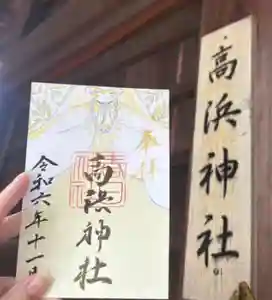 奉拝
高浜神社
令和六年十一
高浜神社